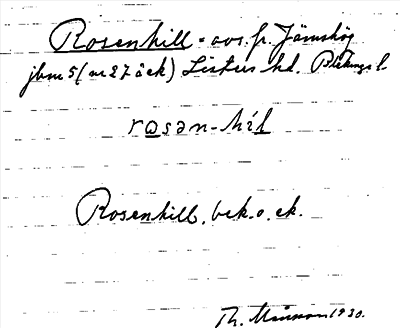 Rosenhill - avs. fr. Jämshög
jbm 5 (nr 27 åek) Listers hd. Blekinge l.
rosən-hil
Rosenhill. bek. o. ek.
Th. 1930.